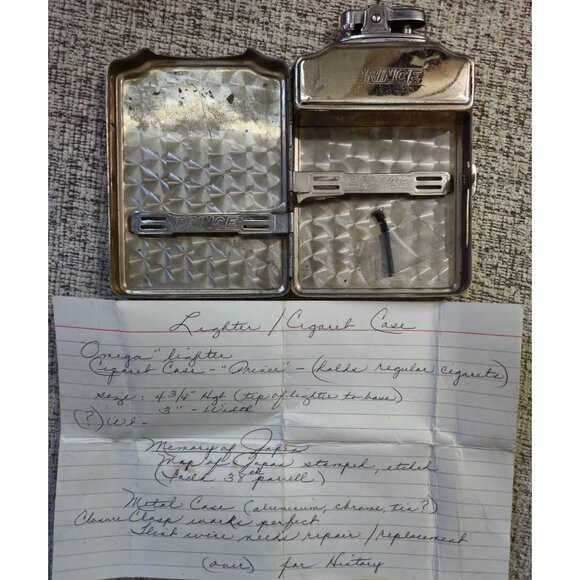 PRINCE
PRINCE
PRINCE
Lighter / Cigaret Case
Omega" lighter
Cigaret Case - "Prince" - (holds regular cigarets)
size: 4 3/4" Hgt (tip of lighter to base)
3" - Width
(?) Wt -
Memory of Japan
Map of Japan stamped, etched
38
Metal Case (aluminum, chrome, tin?)
Closure Clasp works perfect
Flint wire needs repair / replacement
(over) for History